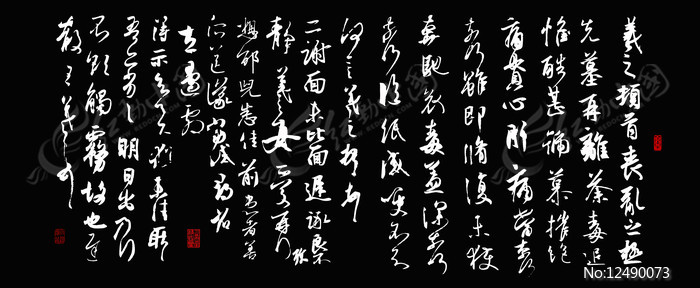 羲之頓首喪亂之極
先墓再離荼毒追
惟酷甚號慕摧絕
痛貫心肝痛當奈何
奈何雖即脩復未獲
奔馳哀毒益深奈何
奈何臨紙感哽不知
何言羲之頓首
二謝面未比面遲詠良
靜羲之女愛再拜
想邵兒悉佳前患者善
左邊劇
得示知足下猶未佳耿
吾亦劣劣明日出乃行
不欲觸霧故也遲
散王羲之頓首
No:12490073